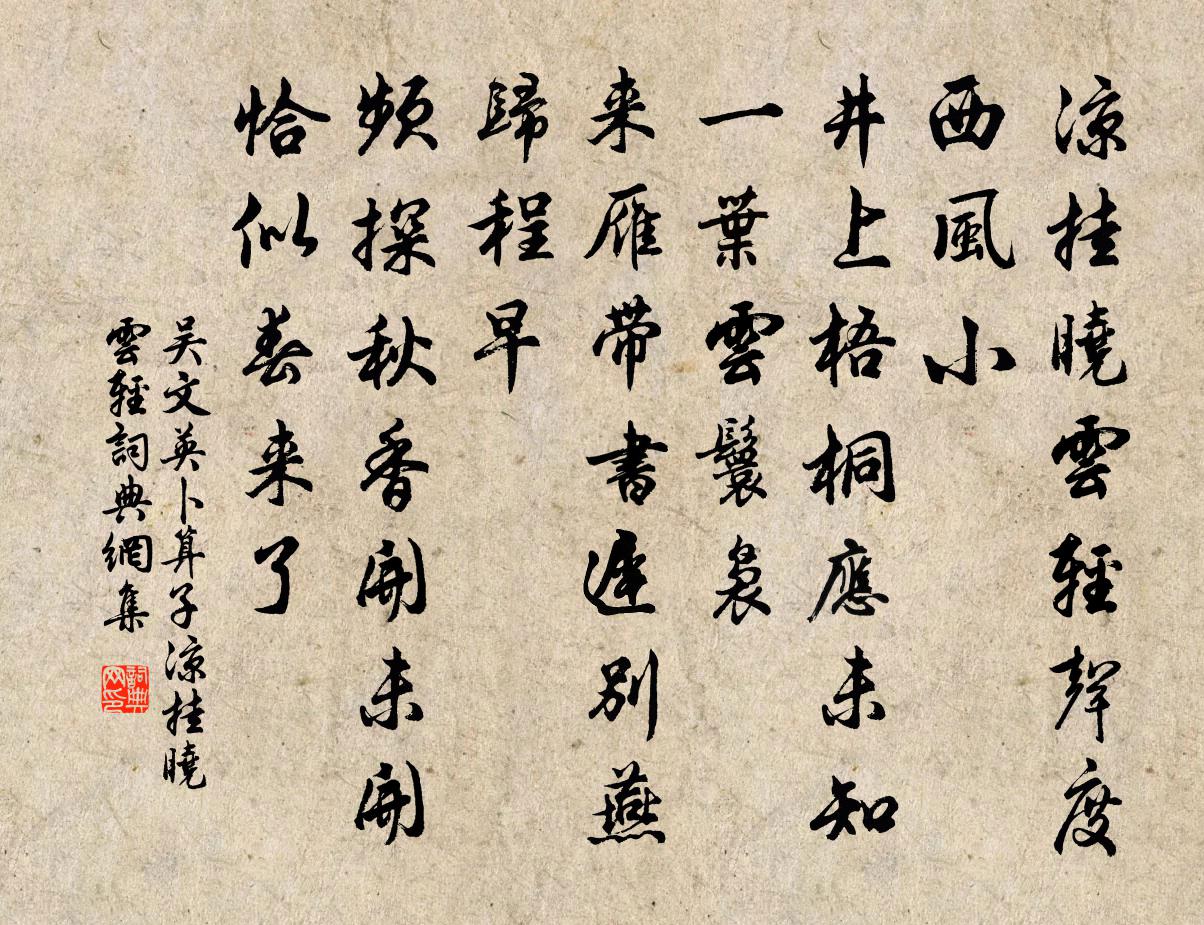 涼挂曉雲輕聲度
西風小
井上梧桐應未知
一葉雲鬟裊
来雁带書遲別燕
歸程早
頻探秋香開未開
恰似春来了
吴文英卜算子涼挂曉
雲輕詞典網集
詞典
网印